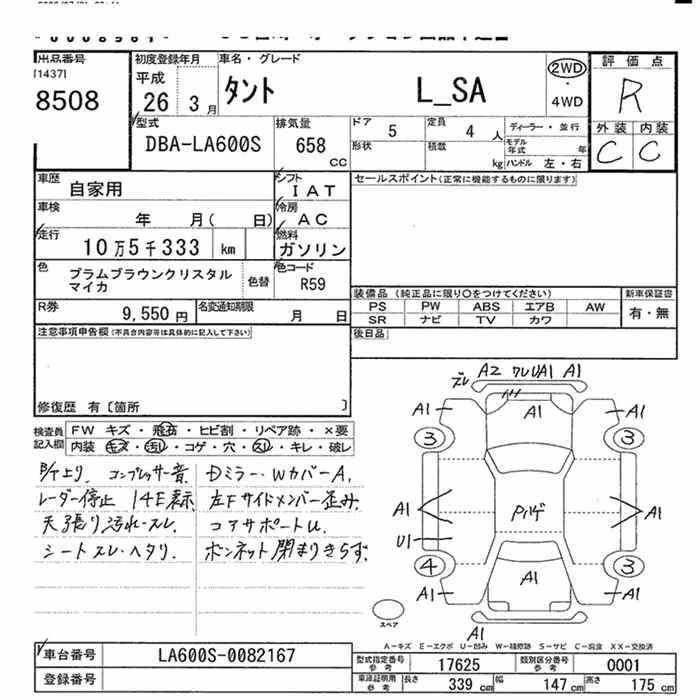 出品番号
[1437]
8508
初度登録年月
平成
26 3 月
車名・グレード
タント L_SA
2WD
・
4WD
評価点
R
外装 内装
C C
型式
DBA-LA600S
排気量
658
cc
ドア 5
定員 4 人
ディーラー・並行
形状
積載 kg
モデル年式 年
ハンドル 左・右
車歴
自家用
シフト
IAT
セールスポイント(正常に機能するものに限ります)
車検
年 月( 日)
冷房
AC
走行
10万5千333 km
燃料
ガソリン
色
プラムブラウンクリスタル
マイカ
色替
色コード
R59
装備品 (純正品に限り○をつけてください)
新車保証書
PS PW ABS エアB AW
有・無
SR ナビ TV カワ
R券
9,550 円
名変通知期限
月 日
後日品
注意事項申告欄(不具合内容等は具体的に記入して下さい)
修復歴 有〔箇所 〕
検査員
記入欄
FW キズ・飛石・ヒビ割・リペア跡・×要
内装 キズ・汚レ・コゲ・穴・スレ・キレ・破レ
コンプレッサー音
レーダー停止 14E表示
天張り汚れ・スレ
シートスレ・ヘタリ.
Dミラー・WカバーA.
左Fサイドメンバー歪み.
コアサポートU
ボンネット閉まりきらず.
ズレ A2 ワレU A1 A1
A1 A1 A1
3 3
A1 Pルーフ A1
U1
4 3
A1 A1 A1
A1
スペア
A-キズ E-エクボ U-凹み W-補修跡 S-サビ C-腐食 XX-交換済
車台番号 LA600S-0082167
登録番号
型式指定番号
参考
17625
類別区分番号
参考
0001
車庫証明用
参考
長さ 339 cm
幅 147 cm
高さ 175 cm